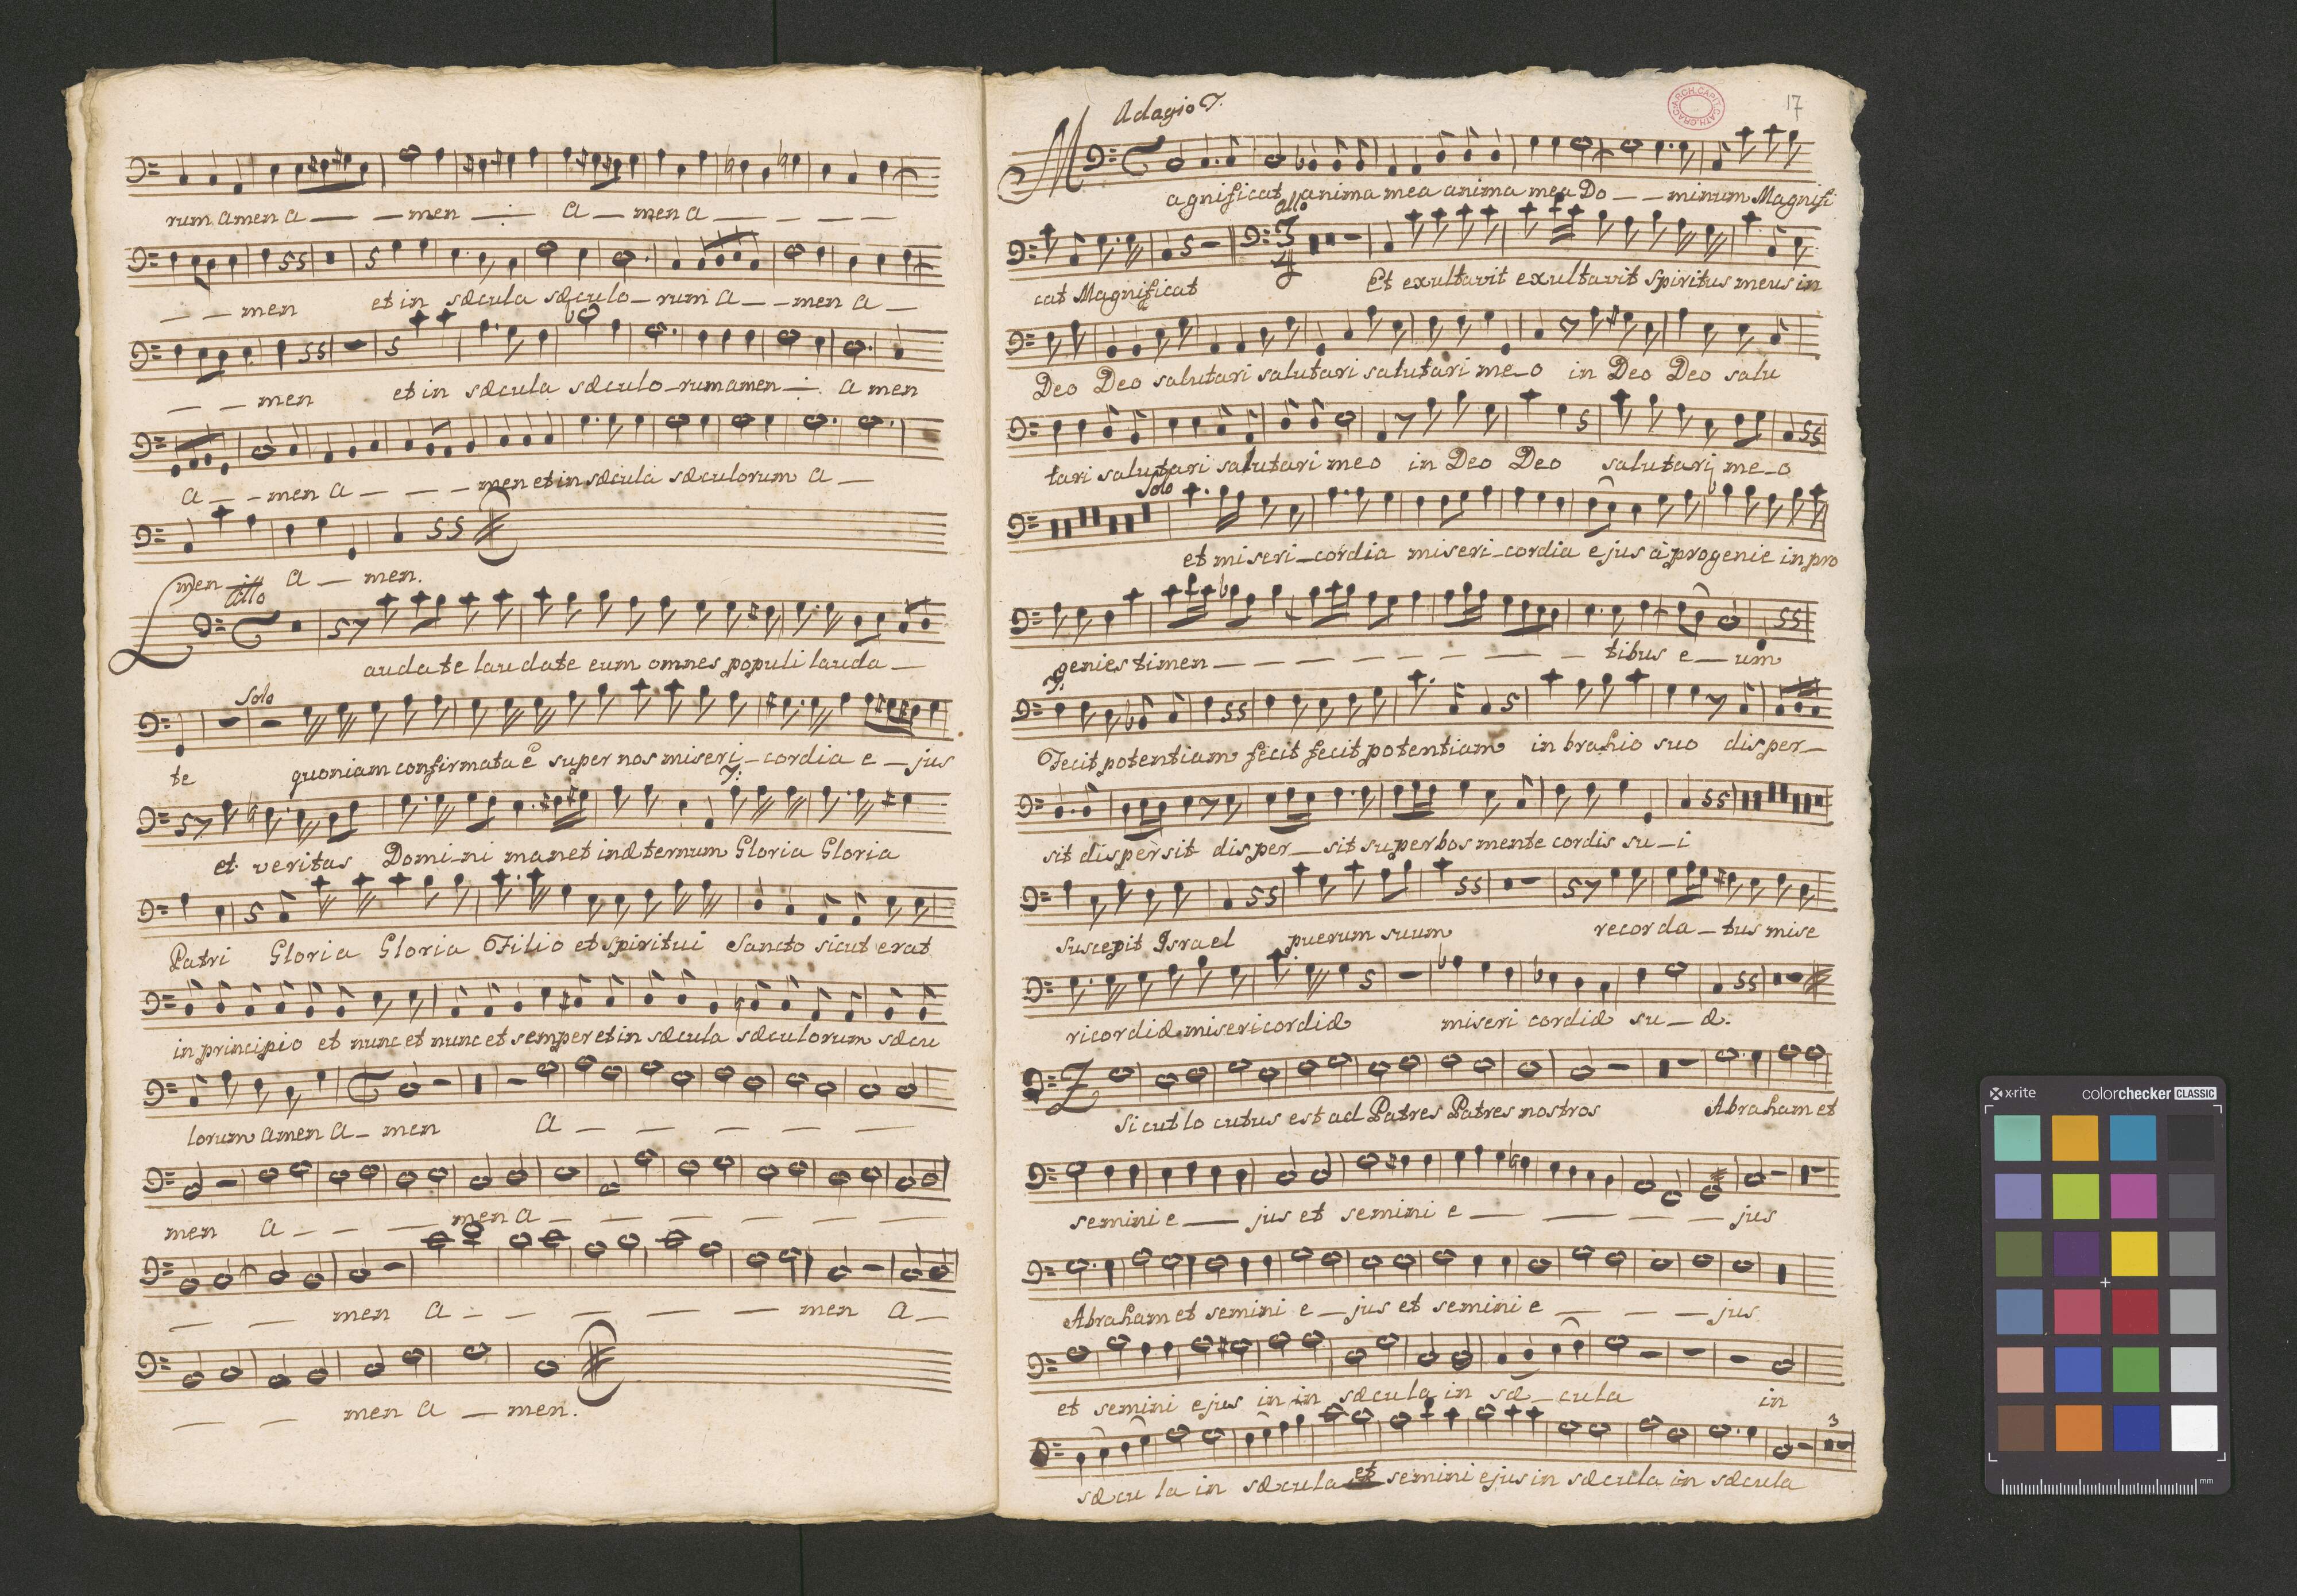 rum amen a — — men — : a — men a — — — —
— — men et in sæcula sæculo — rum a — — men a —
— — men et in sæcula sæculo — rum amen — : a men
a — — men a — — — men et in sæcula sæculorum a —
men a — men.
Allo
Laudate laudate eum omnes populi lauda —
Solo
te quoniam confirmata ē super nos miseri — cordia e — jus
T:
et veritas Domi — ni manet in æternum Gloria Gloria
Patri Gloria Gloria Filio et spiritui Sancto sicut erat
in principio et nunc et nunc et semper et in sæcula sæculorum sæcu
lorum amen a — men a — — — — —
men a — — — men a — — — — — —
— — men a — — — — — men a —
— — men a — men.
17
ARCH. CAPIT. CATH. GRAC.
Adagio T.
Magnificat anima mea anima mea Do — — minum Magnifi
allo
3/4
cat Magnificat Et exultavit exultavit Spiritus meus in
Deo Deo salutari salutari salutari me — o in Deo Deo salu
tari salutari salutari meo in Deo Deo salutari me — o
Solo
et miseri — cordia miseri — cordia ejus a progenie in pro
genies timen — — — — — — — — tibus e — um
T.
Fecit potentiam fecit fecit potentiam in brahio suo disper —
sit dispersit disper — sit superbos mente cordis su — i
Suscepit Israel puerum suum recorda — tus mise
ricordiæ misericordiæ miseri cordiæ su — æ.
Sicut lo cutus est ad Patres Patres nostros Abraham et
semini e — jus et semini e — — — — jus
Abraham et semini e — jus et semini e — — — jus
et semini ejus in in sæcula in sæ — cula in
3
sæcu la in sæcula et semini ejus in sæcula in sæcula
x-rite colorchecker CLASSIC
mm